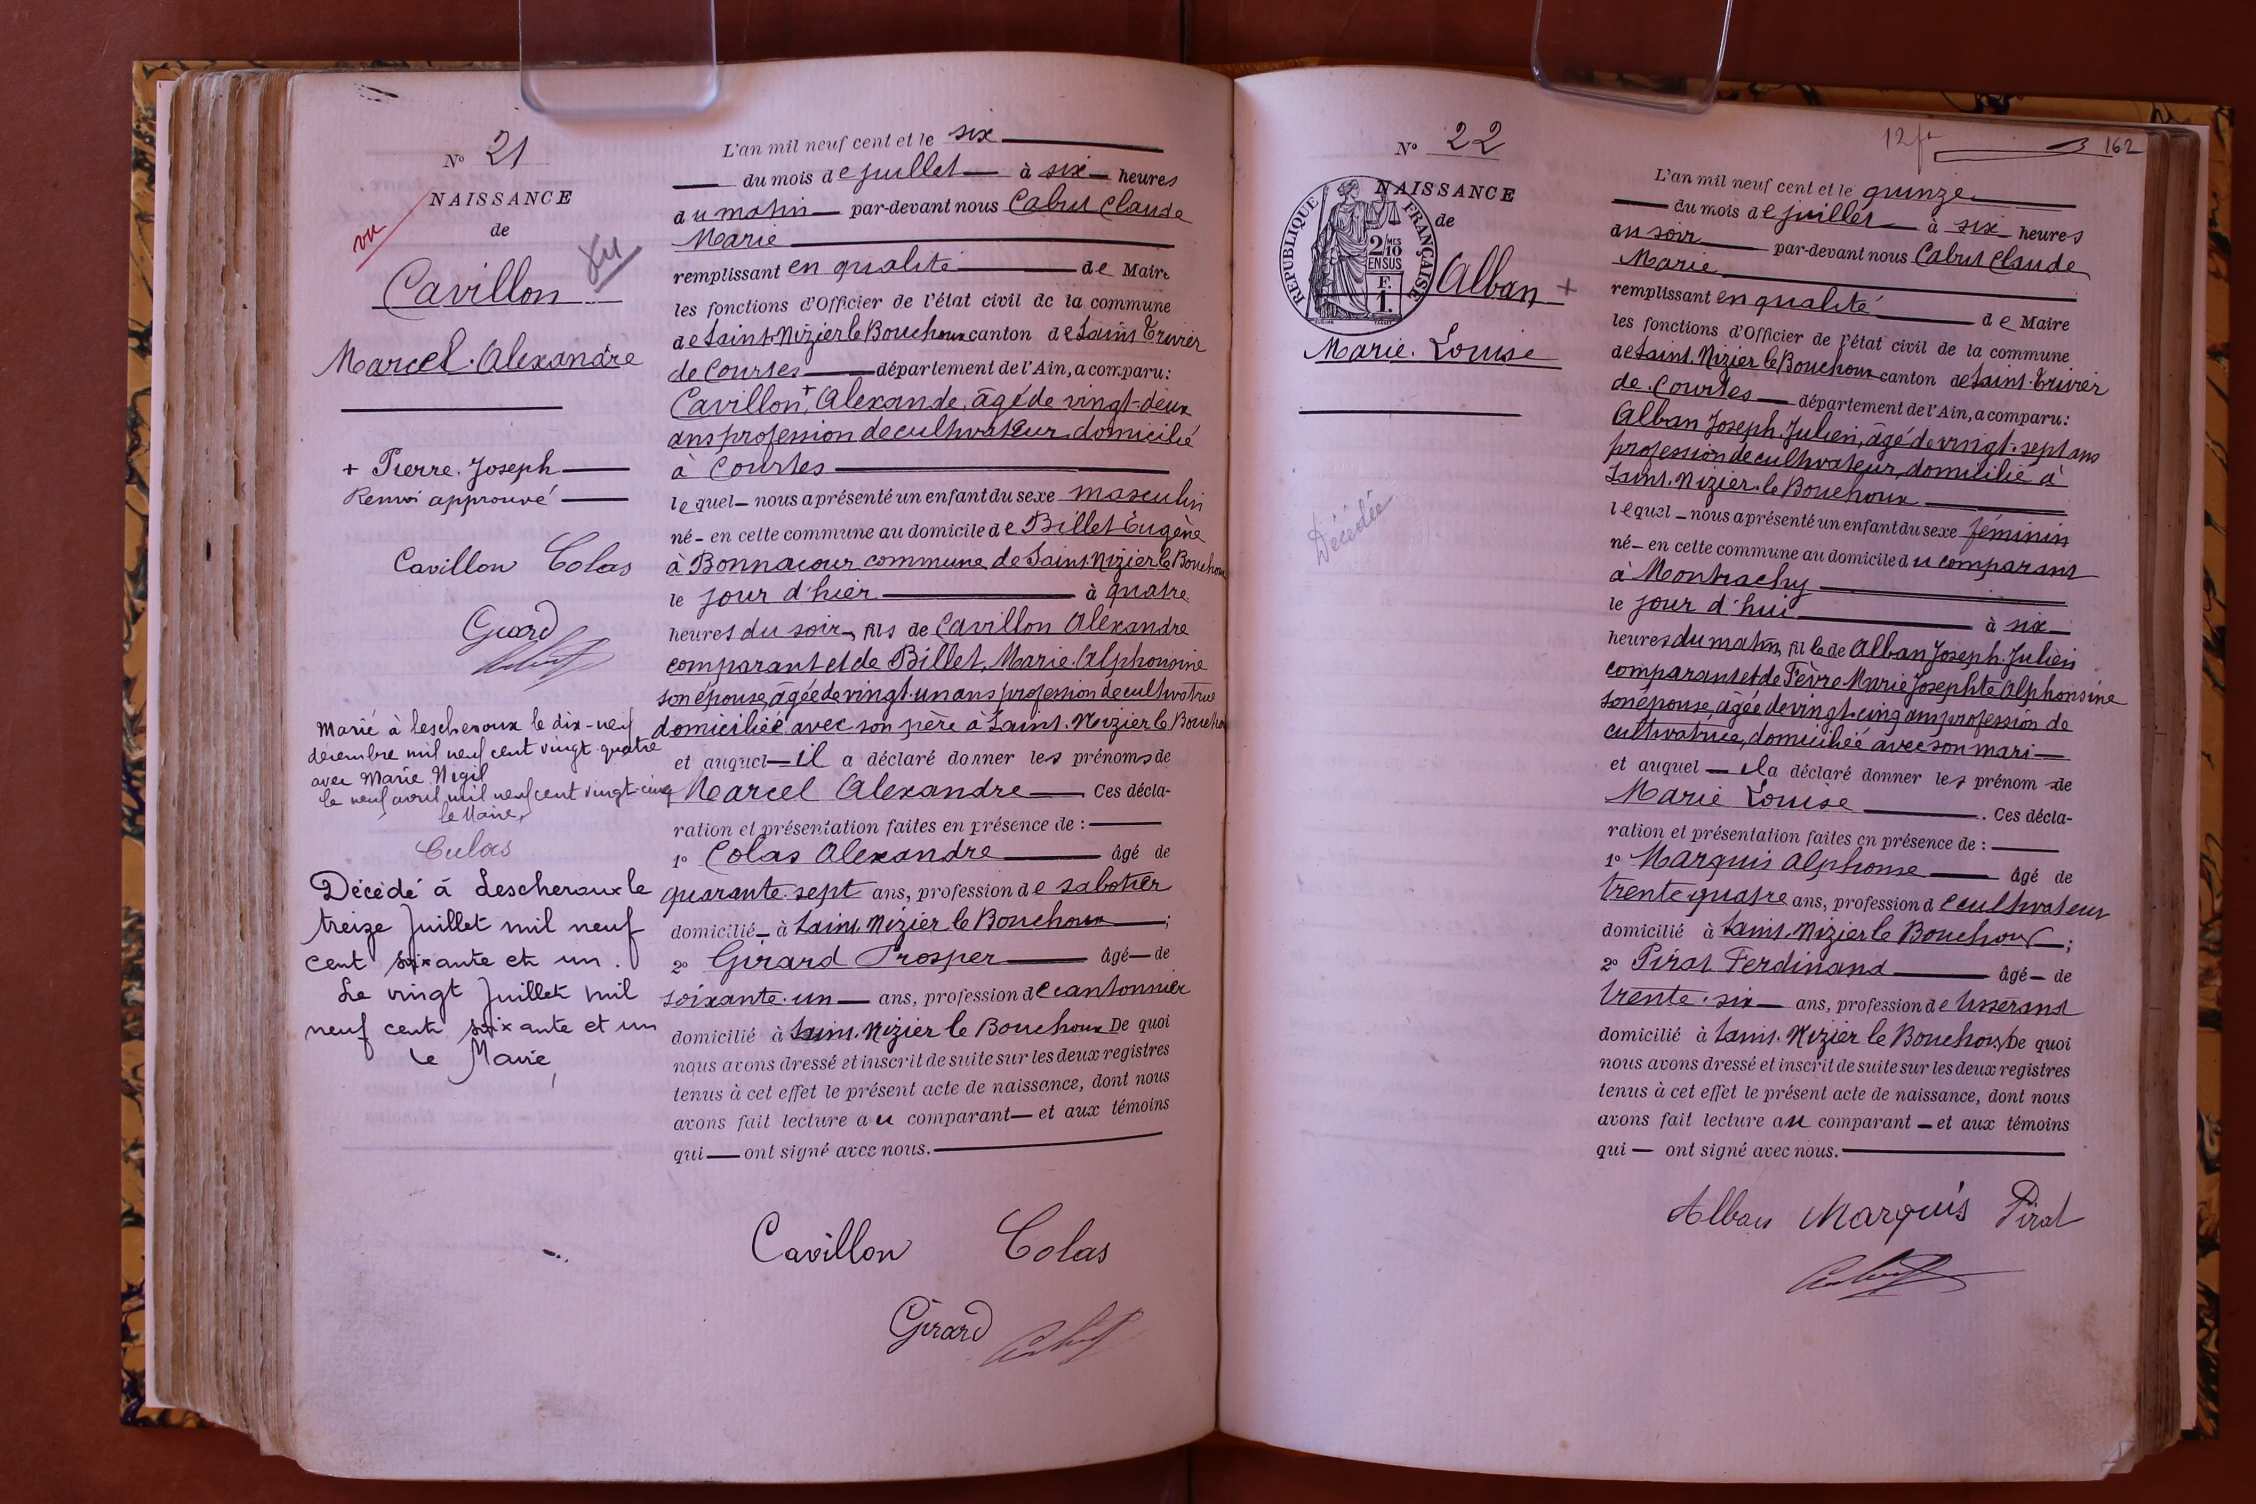 N° 21
NAISSANCE
de
vu
Cavillon
Marcel Alexandre
+ Pierre Joseph
Renvoi approuvé
Cavillon Colas
Girard
Marié à Lescheroux le dix-neuf
décembre mil neuf cent vingt-quatre
avec Marie
le neuf avril mil neuf cent vingt-cinq
le Maire,
Colas
Décédé à Lescheroux le
treize Juillet mil neuf
cent soixante et un.
Le vingt Juillet mil
neuf cent soixante et un
Le Maire,
L'an mil neuf cent et le six
du mois de juillet à six heures
du matin par-devant nous Cabut Claude
Marie
remplissant en qualité de Maire
les fonctions d'Officier de l'état civil de la commune
de Saint-Nizier le Bouchoux canton de Saint Trivier
de Courtes département de l'Ain, a comparu:
Cavillon,+ Alexande, âgé de vingt-deux
ans profession de cultivateur domicilié
à Courtes
lequel nous a présenté un enfant du sexe masculin
né en cette commune au domicile de Billet Eugène
à Bonnacour commune de Saint-Nizier le Bouchoux
le jour d'hier à quatre
heures du soir, fils de Cavillon Alexandre
comparant et de Billet, Marie Alphonsine
son épouse, âgée de vingt-un ans profession de cultivatrice
domiciliée avec son père à Saint-Nizier le Bouchoux
et auquel il a déclaré donner les prénoms de
Marcel Alexandre Ces décla-
ration et présentation faites en présence de :
1° Colas Alexandre âgé de
quarante-sept ans, profession de sabotier
domicilié à Saint-Nizier le Bouchoux ;
2° Girard Prosper âgé de
soixante-un ans, profession de cantonnier
domicilié à Saint-Nizier le Bouchoux De quoi
nous avons dressé et inscrit de suite sur les deux registres
tenus à cet effet le présent acte de naissance, dont nous
avons fait lecture au comparant et aux témoins
qui ont signé avec nous.
Cavillon Colas
Girard
N° 22
NAISSANCE
de
RÉPUBLIQUE FRANÇAISE
2/10 MES
EN SUS
1 F.
Alban +
Marie Louise
Décédée
12 162
L'an mil neuf cent et le quinze
du mois de juillet à six heures
du soir par-devant nous Cabut Claude
Marie
remplissant en qualité de Maire
les fonctions d'Officier de l'état civil de la commune
de Saint-Nizier le Bouchoux canton de Saint-Trivier
de Courtes département de l'Ain, a comparu:
Alban Joseph Julien, âgé de vingt-sept ans
profession de cultivateur, domicilié à
Saint-Nizier-le Bouchoux
lequel nous a présenté un enfant du sexe féminin
né en cette commune au domicile du comparant
à Montrachy
le jour d'hui à six
heures du matin, fille de Alban Joseph Julien
comparant et de Fèvre Marie Josephte Alphonsine
son épouse, âgée de vingt-cinq ans profession de
cultivatrice, domiciliée avec son mari
et auquel il a déclaré donner les prénom de
Marie Louise . Ces décla-
ration et présentation faites en présence de :
1° Marquis Alphonse âgé de
trente quatre ans, profession de cultivateur
domicilié à Saint-Nizier le Bouchoux ;
2° Pirat Ferdinand âgé de
trente-six ans, profession de tisserand
domicilié à Saint-Nizier le Bouchoux De quoi
nous avons dressé et inscrit de suite sur les deux registres
tenus à cet effet le présent acte de naissance, dont nous
avons fait lecture au comparant et aux témoins
qui ont signé avec nous.
Alban Marquis Pirat